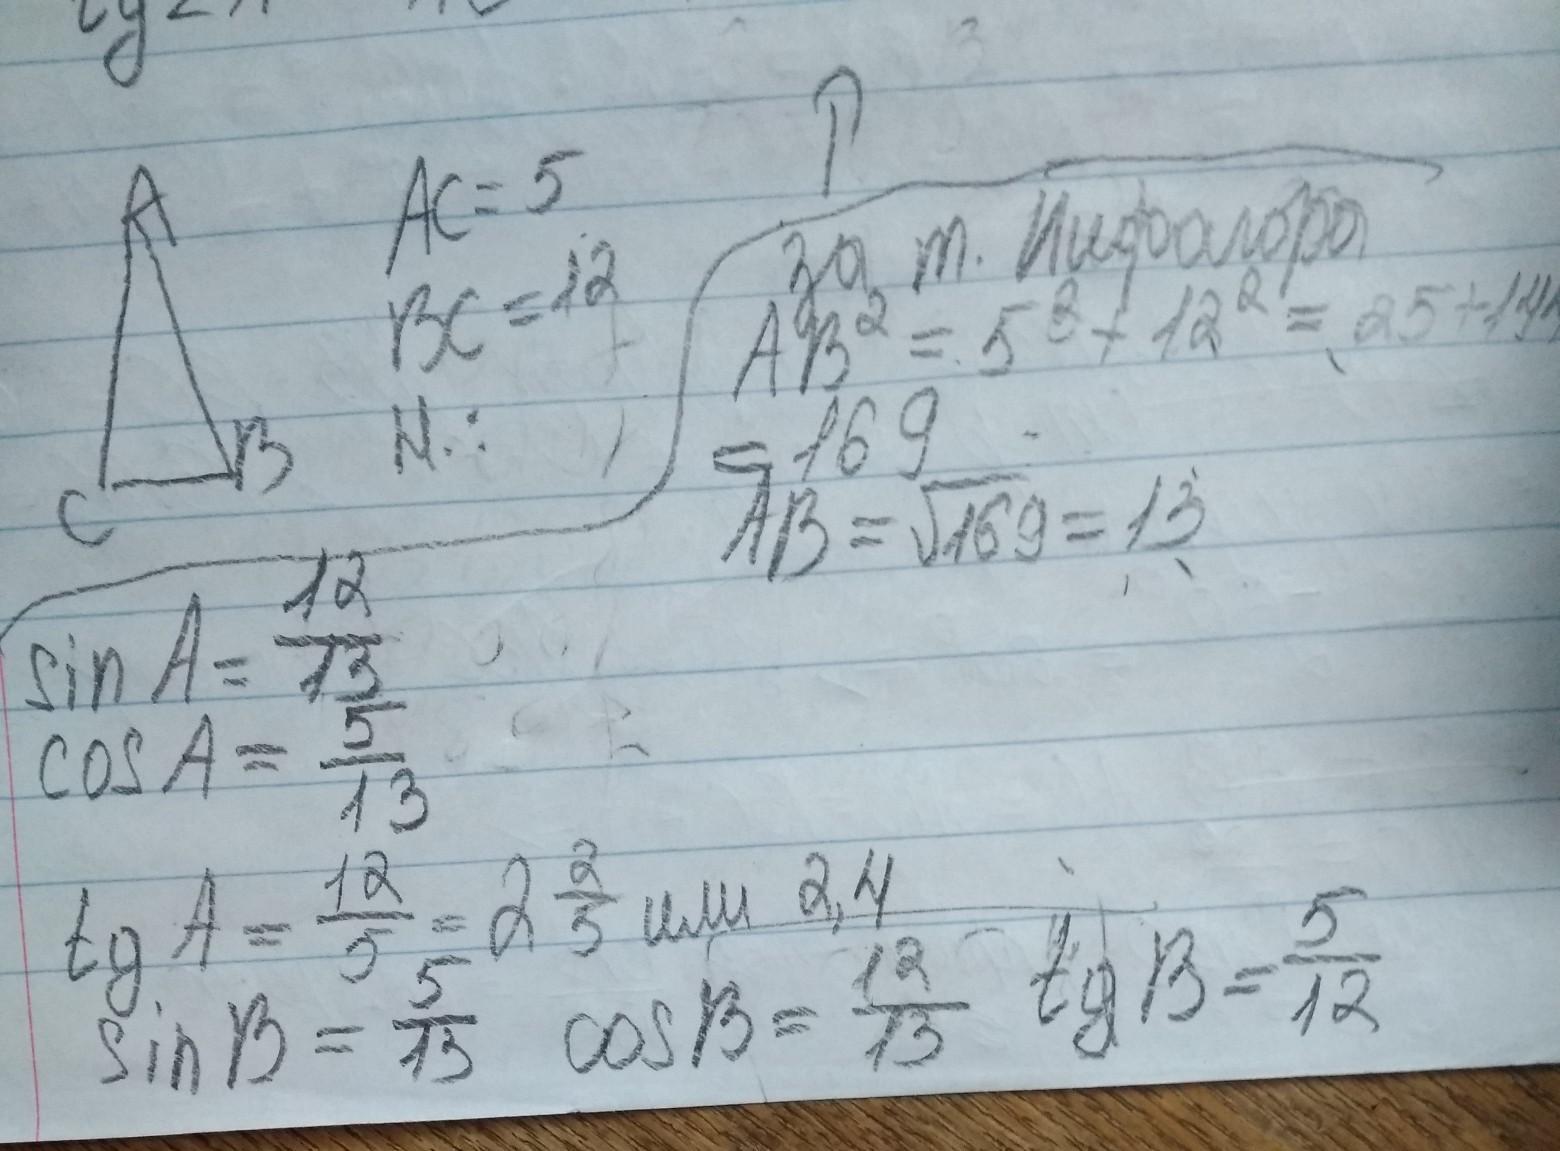 A
C
B
AC = 5
BC = 12
H.:
за т. Пифагора
AB² = 5² + 12² = 25 + 144
= 169
AB = √169 = 13
sin A = 12/13
cos A = 5/13
tg A = 12/5 = 2 2/5 или 2,4
sin B = 5/13 cos B = 12/13 tg B = 5/12